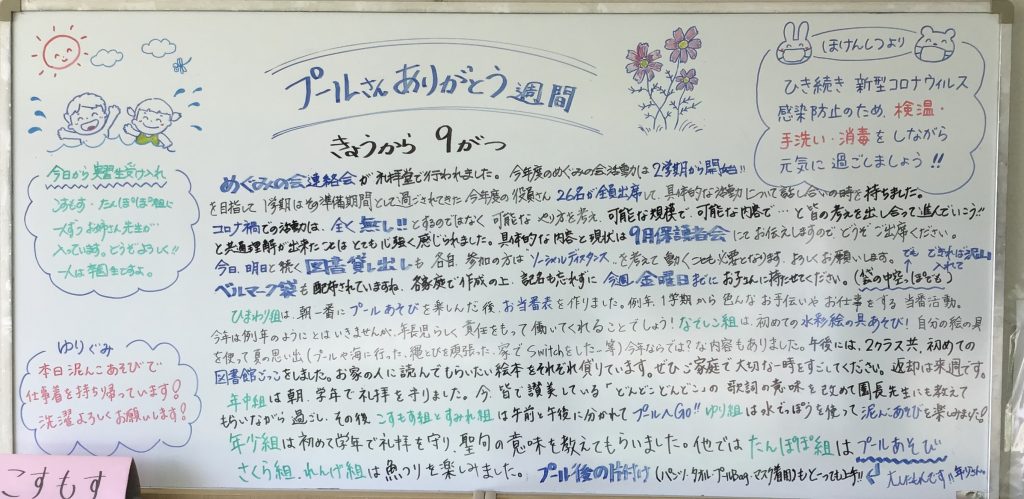 プールさんありがとう週間
きょうから 9がつ
ほけんしつより
ひき続き 新型コロナウィルス
感染防止のため、検温・
手洗い・消毒をしながら
元気に過ごしましょう!!
今日から実習生受け入れ
こすもす・たんぽぽ組に
一人ずつお姉さん先生が
入っています。どうぞよろしく!!
一人は卒園生ですよ。
めぐみの会連絡会が礼拝堂で行われました。今年度のめぐみの会活動は2学期から開始!!
を目指して1学期は準備期間として過ごされてきた今年度の役員さん26名が全員出席して、具体的な活動について話し合いの時を持ちました。
コロナ禍での活動は、全く無し!!とするのではなく可能なやり方を考え、可能な規模で、可能な内容で…と皆の考えを出し合って進んでいこう!!
と共通理解が出来たことはとても心強く感じられました。具体的な内容と現状は9月保護者会にてお伝えしますのでどうぞご出席ください。
今日、明日と続く図書貸し出しも各自、参加の方はソーシャルディスタンスを考えて動くことも必要となります。よろしくお願いします。
ベルマーク袋も配布されていますね。各家庭で作成の上、記名も忘れずに今週金曜日までにお子さんに持たせてください。
ひまわり組は、朝一番にプールあそびを楽しんだ後、お当番表を作りました。例年、1学期から色んなお手伝いやお仕事をする当番活動。
今年は例年のようにとはいきませんが、年長児らしく責任をもって働いてくれることでしょう!なでしこ組は、初めての水彩絵の具あそび!自分の絵の具
を使って夏の思い出(プールや海に行った、縄とびを頑張った、家でSwitchをした…等)今年ならでは?な内容もありました。午後には、2クラス共、初めての
図書館ごっこをしました。お家の人に読んでもらいたい絵本をそれぞれ借りています。ぜひご家庭で大切な一時をすごしてください。返却は来週です。
年中組は朝、学年で礼拝を守りました。今、皆で讃美している「どんどこどんどこ」の歌詞の意味を改めて園長先生にも教えて
もらいながら過ごし、その後こすもす組とすみれ組は午前と午後に分かれてプールへGo!!ゆり組は水でっぽうを使って泥んこあそびを楽しみました!
年少組は初めて学年で礼拝を守り、聖句の意味を教えてもらいました。他ではたんぽぽ組はプールあそび
さくら組、れんげ組は魚つりを楽しみました。プール後の片付け(パンツ・タオル・プールBag・マスク着用)もとっても上手!!
ゆりぐみ
本日泥んこあそびで
仕事着を持ち帰っています!
洗濯よろしくお願いします!
こすもす